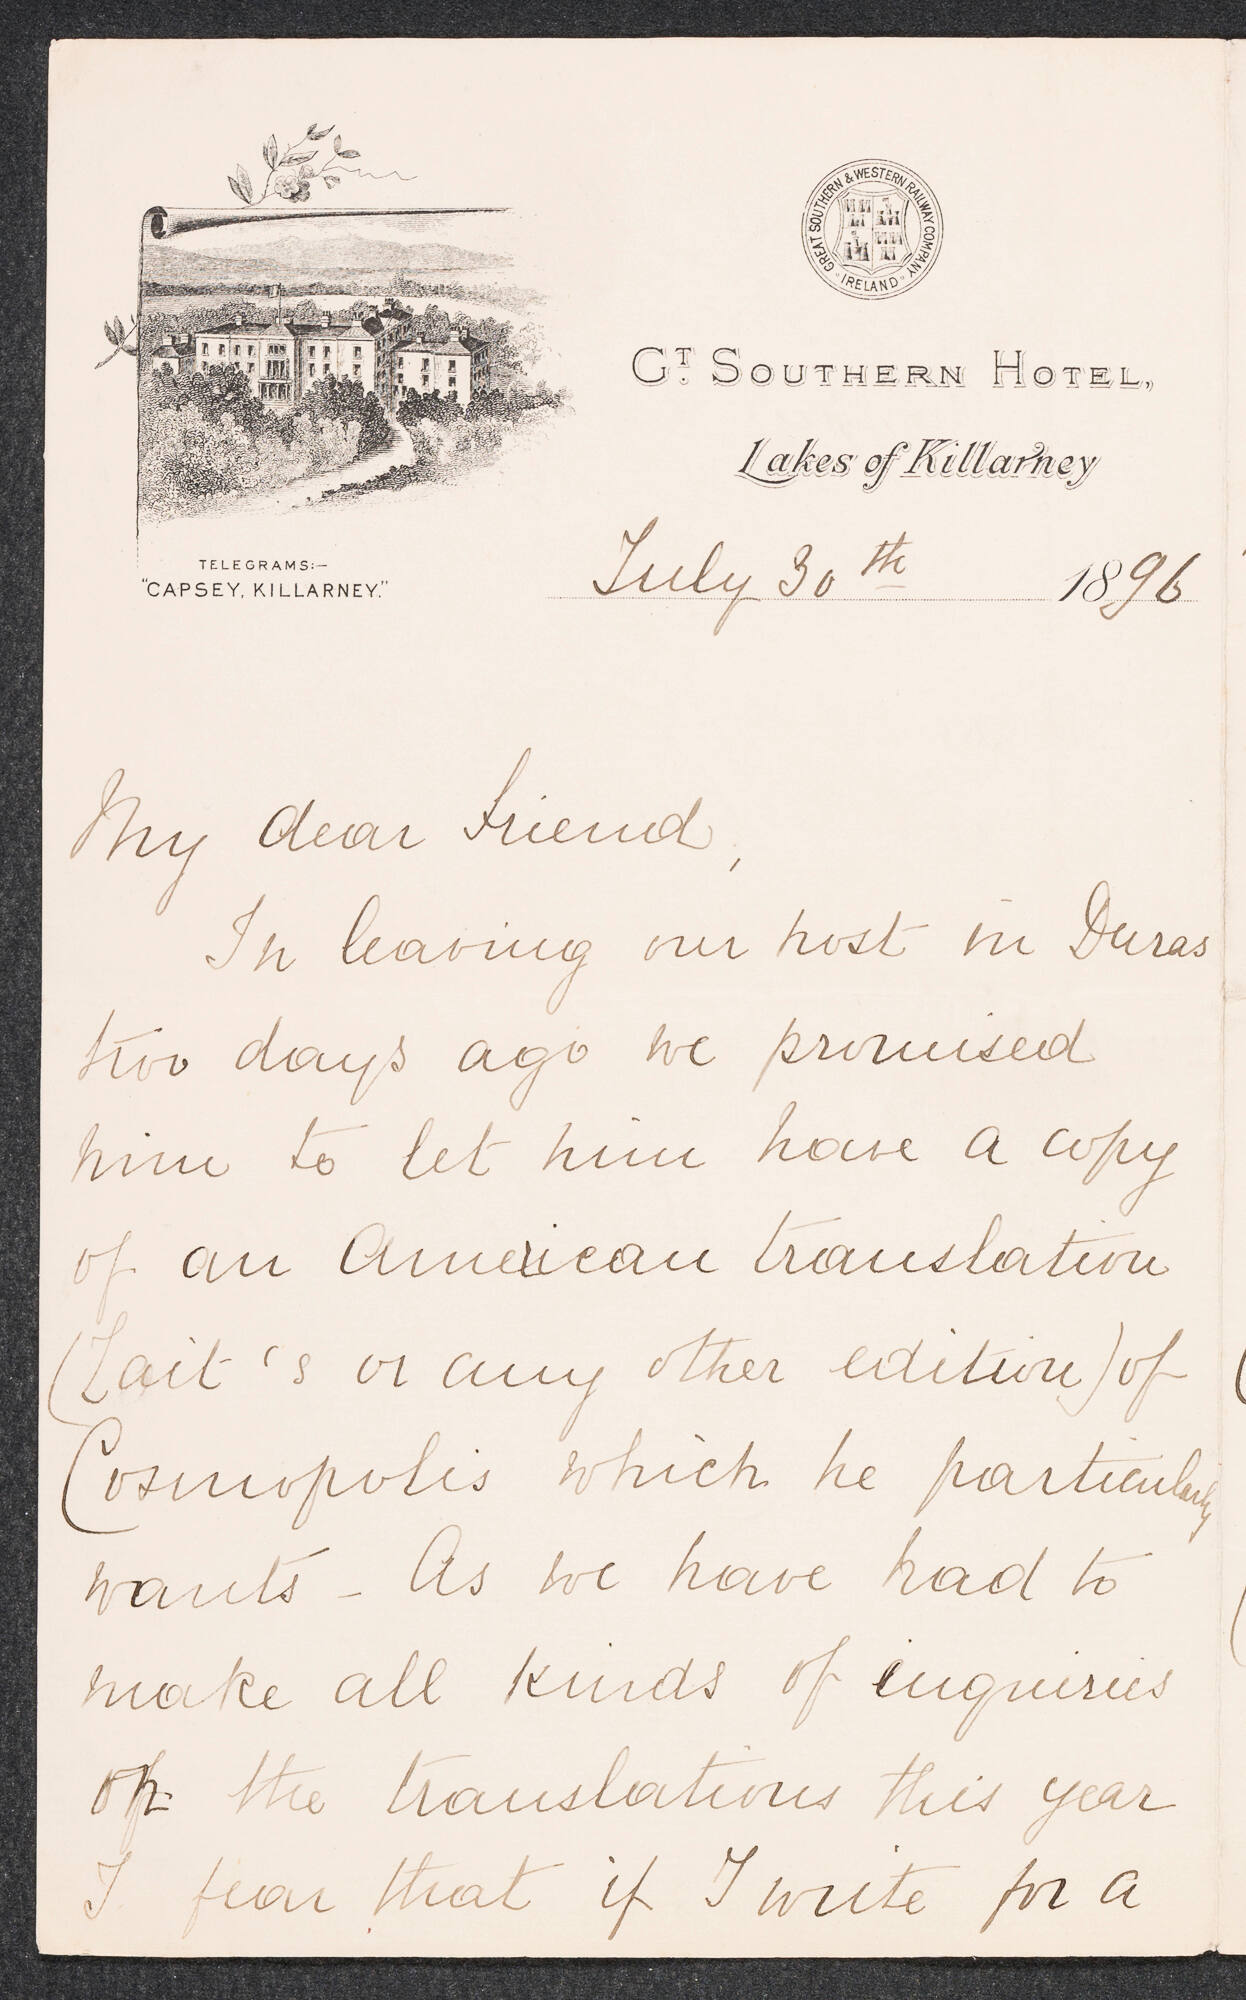 GREAT SOUTHERN & WESTERN RAILWAY COMPANY
IRELAND
GT. SOUTHERN HOTEL,
Lakes of Killarney
TELEGRAMS:—
"CAPSEY, KILLARNEY."
July 30th 1896
My dear Friend,
In leaving our host in Duras
two days ago we promised
him to let him have a copy
of an American translation
(Tait's or any other edition) of
Cosmopolis which he particularly
wants - As we have had to
make all kinds of inquiries
of the translations this year
I fear that if I write for a